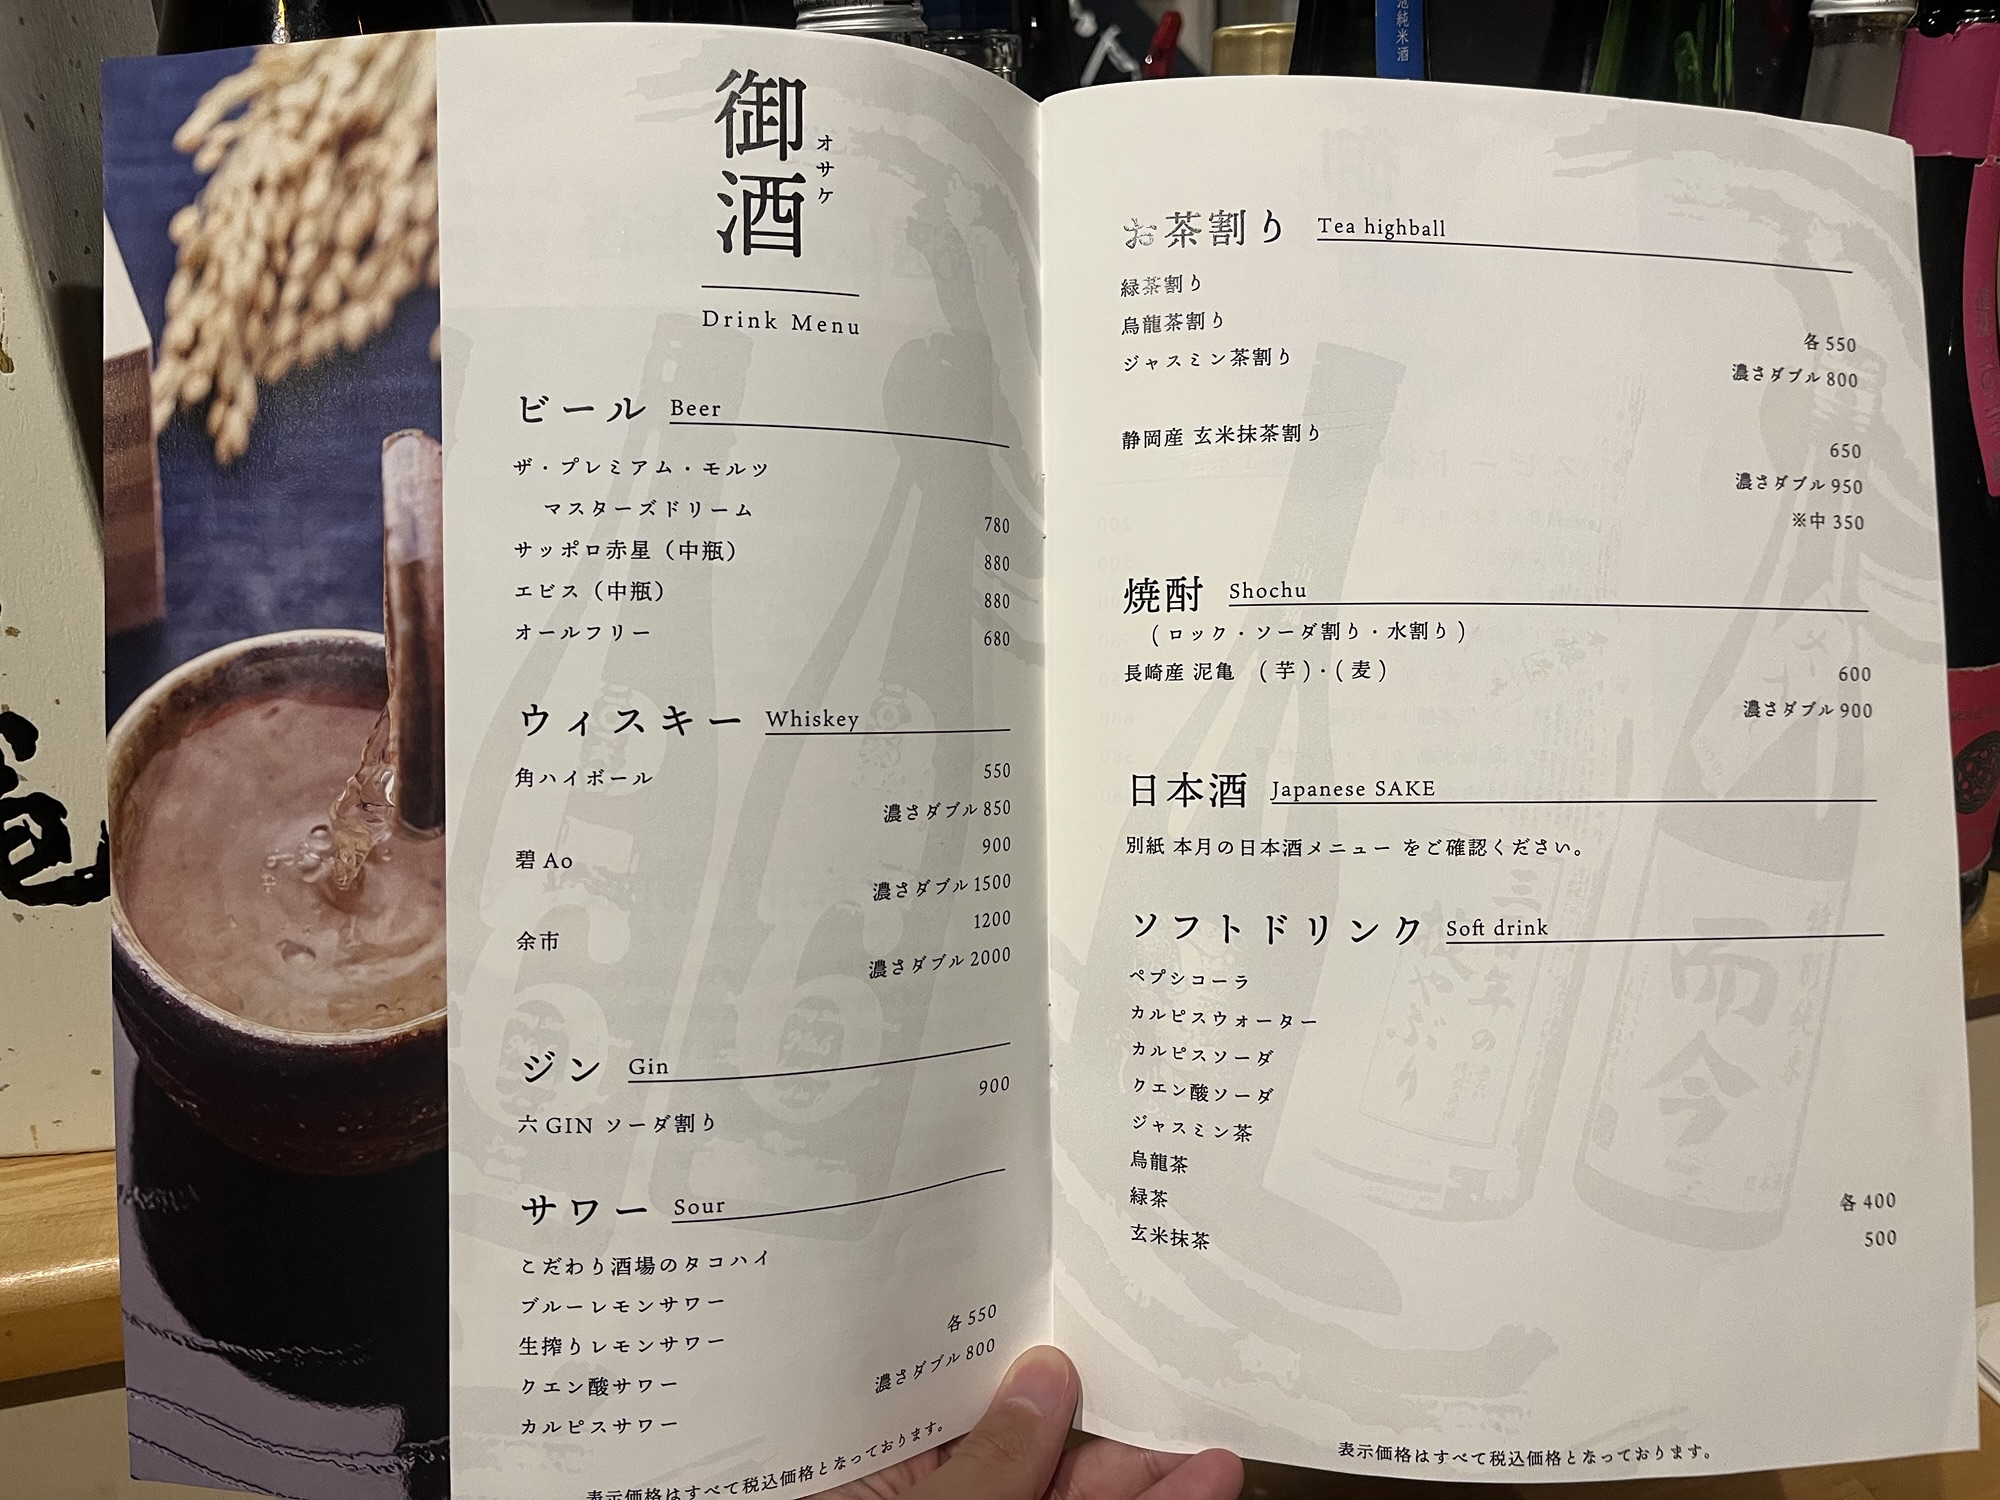 御酒
オサケ
Drink Menu
ビール Beer
ザ・プレミアム・モルツ
マスターズドリーム 780
サッポロ赤星（中瓶） 880
エビス（中瓶） 880
オールフリー 680
ウィスキー Whiskey
角ハイボール 550
濃さダブル 850
碧 Ao 900
濃さダブル 1500
余市 1200
濃さダブル 2000
ジン Gin
六 GIN ソーダ割り 900
サワー Sour
こだわり酒場のタコハイ
ブルーレモンサワー
生搾りレモンサワー
クエン酸サワー 各 550
カルピスサワー 濃さダブル 800
表示価格はすべて税込価格となっております。
お茶割り Tea highball
緑茶割り
烏龍茶割り
ジャスミン茶割り 各 550
濃さダブル 800
静岡産 玄米抹茶割り 650
濃さダブル 950
※中 350
焼酎 Shochu
(ロック・ソーダ割り・水割り)
長崎産 泥亀 (芋)・(麦) 600
濃さダブル 900
日本酒 Japanese SAKE
別紙 本月の日本酒メニュー をご確認ください。
ソフトドリンク Soft drink
ペプシコーラ
カルピスウォーター
カルピスソーダ
クエン酸ソーダ
ジャスミン茶
烏龍茶
緑茶 各 400
玄米抹茶 500
表示価格はすべて税込価格となっております。
純米酒
而今